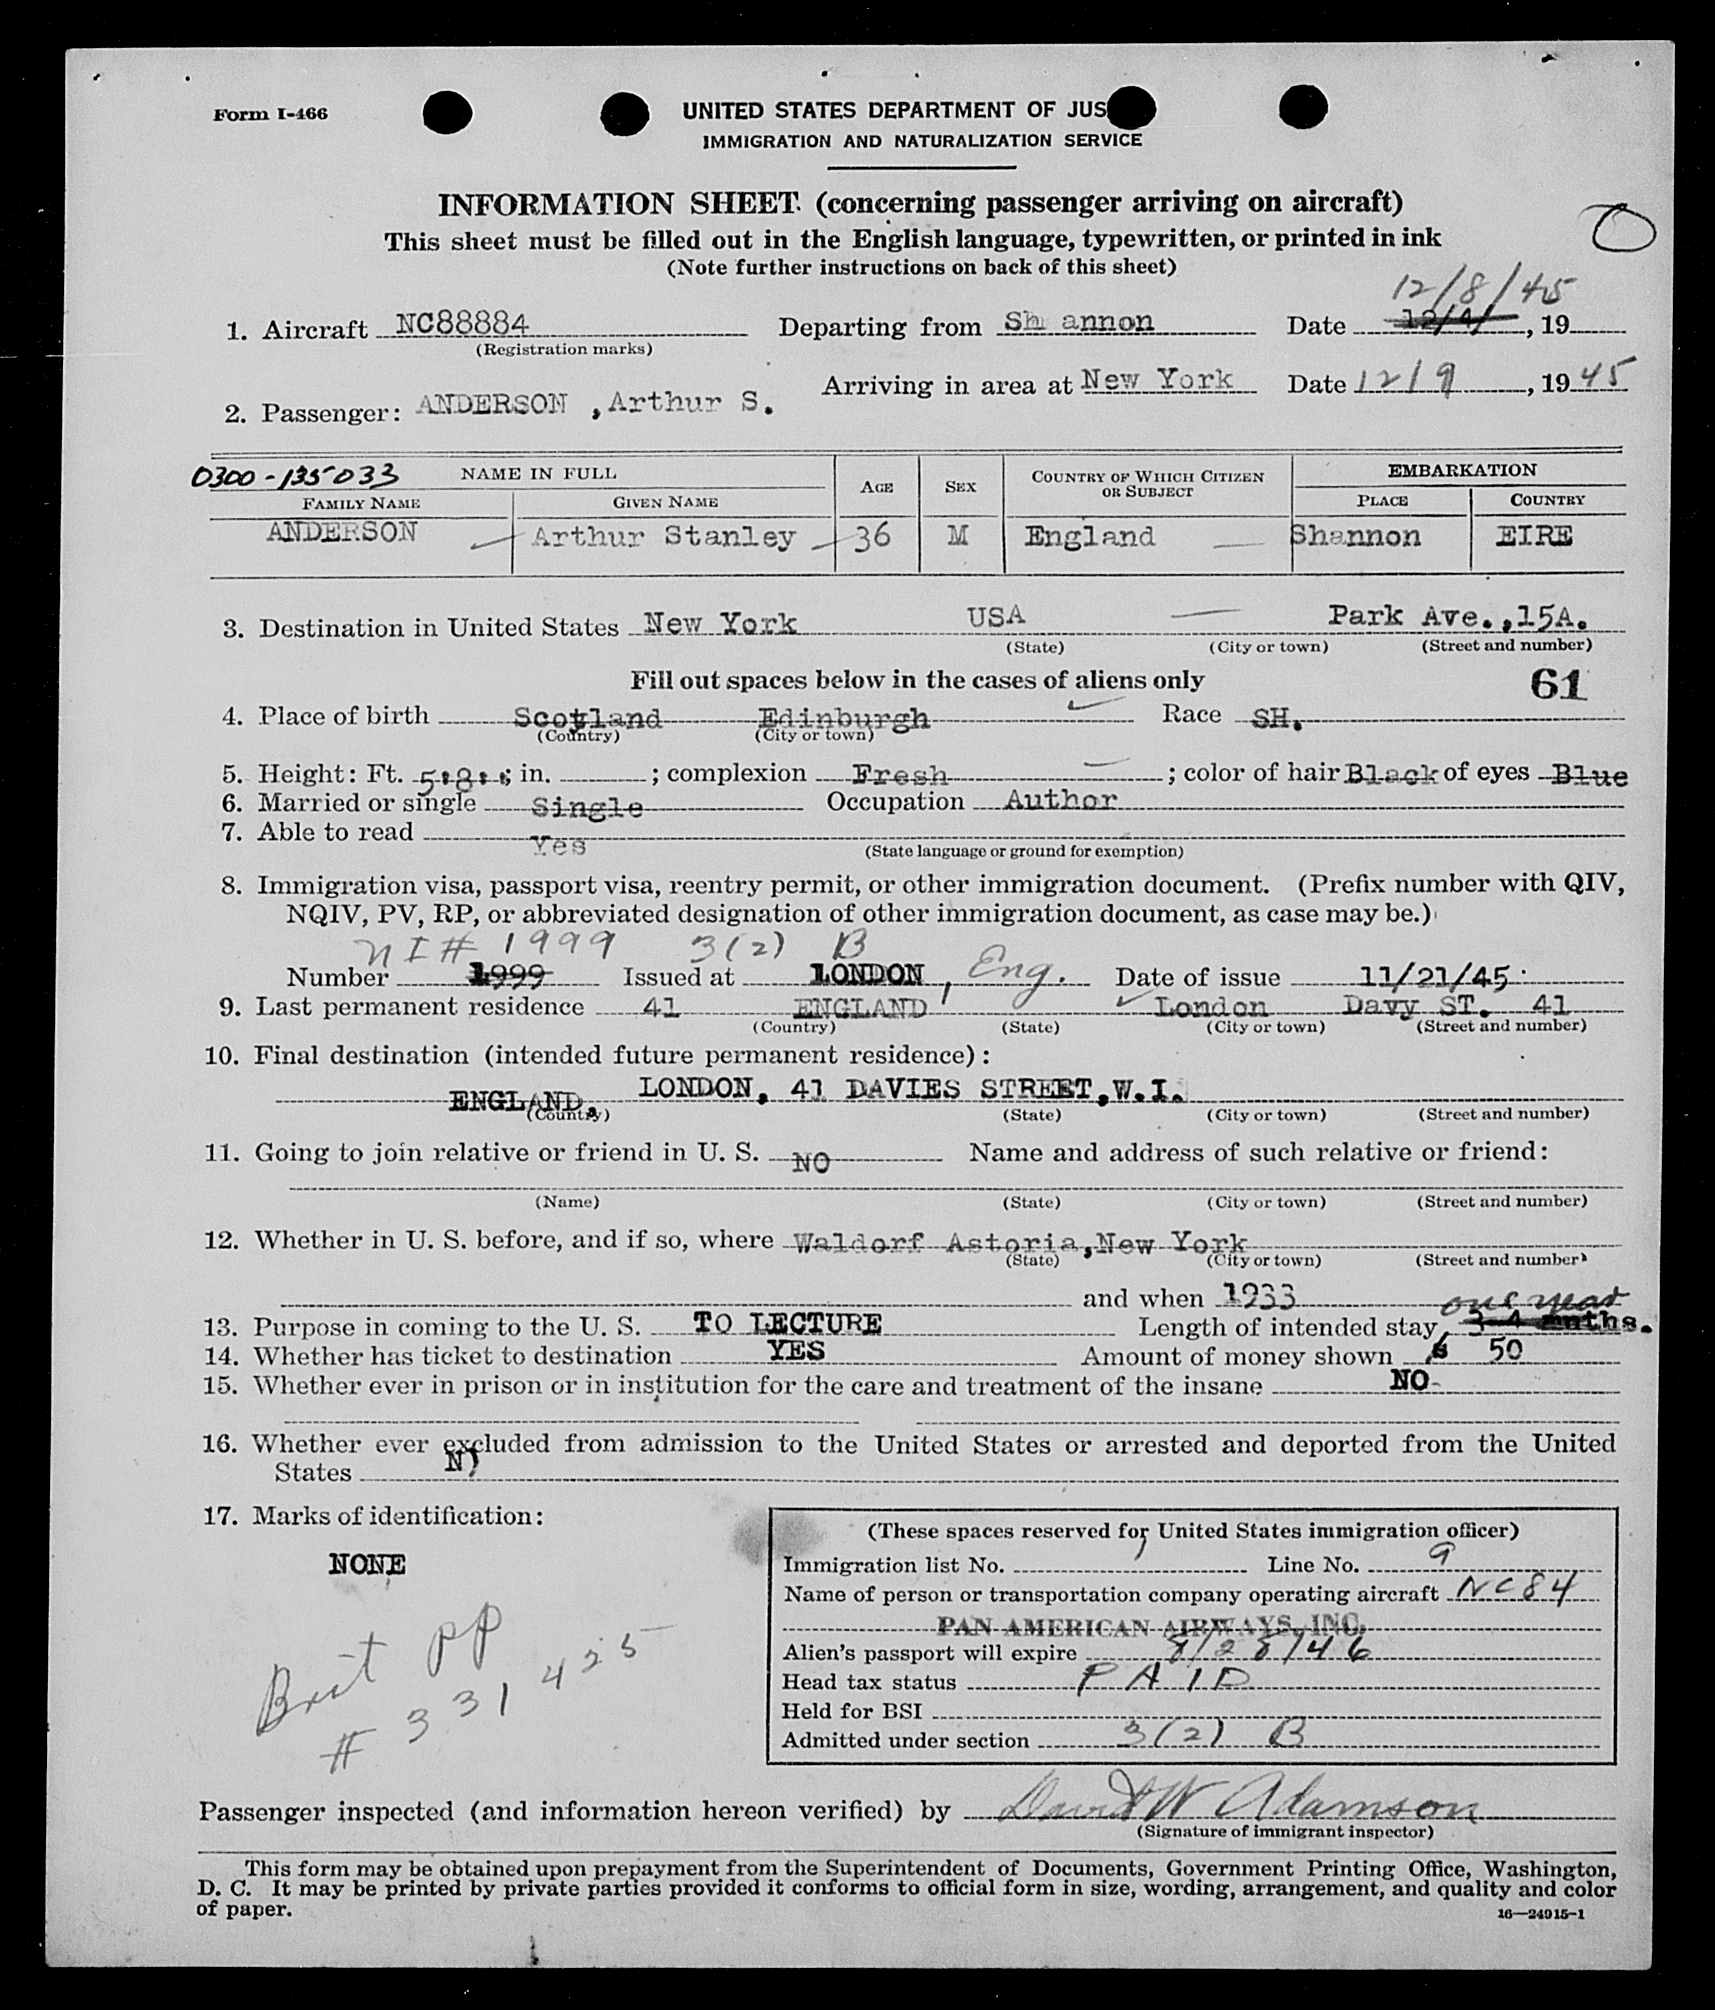 Form I-466
UNITED STATES DEPARTMENT OF JUS
IMMIGRATION AND NATURALIZATION SERVICE
INFORMATION SHEET (concerning passenger arriving on aircraft)
This sheet must be filled out in the English language, typewritten, or printed in ink
(Note further instructions on back of this sheet)
12/8/45
1. Aircraft NC88884 Departing from Sh annon Date 12/4/, 19
(Registration marks)
Arriving in area at New York Date 12/9, 1945
2. Passenger: ANDERSON , Arthur S.
0300-135033 NAME IN FULL AGE SEX COUNTRY OF WHICH CITIZEN OR SUBJECT EMBARKATION
FAMILY NAME GIVEN NAME PLACE COUNTRY
ANDERSON Arthur Stanley 36 M England Shannon EIRE
3. Destination in United States New York USA Park Ave.,15A.
(State) (City or town) (Street and number)
Fill out spaces below in the cases of aliens only 61
4. Place of birth Scotland Edinburgh Race SH.
(Country) (City or town)
5. Height: Ft. 5:8: in. ; complexion Fresh ; color of hair Black of eyes Blue
6. Married or single Single Occupation Author
7. Able to read Yes
(State language or ground for exemption)
8. Immigration visa, passport visa, reentry permit, or other immigration document. (Prefix number with QIV,
NQIV, PV, RP, or abbreviated designation of other immigration document, as case may be.)
NI# 1999 3(2) B
Number 1999 Issued at LONDON, Eng. Date of issue 11/21/45
9. Last permanent residence 41 ENGLAND London Davy ST. 41
(Country) (State) (City or town) (Street and number)
10. Final destination (intended future permanent residence):
ENGLAND, LONDON, 41 DAVIES STREET,W.I.
(Country) (State) (City or town) (Street and number)
11. Going to join relative or friend in U. S. NO Name and address of such relative or friend:
(Name) (State) (City or town) (Street and number)
12. Whether in U. S. before, and if so, where Waldorf Astoria,New York
(State) (City or town) (Street and number)
and when 1933
one year
13. Purpose in coming to the U. S. TO LECTURE Length of intended stay 3-4 mnths.
14. Whether has ticket to destination YES Amount of money shown $ 50
15. Whether ever in prison or in institution for the care and treatment of the insane NO
16. Whether ever excluded from admission to the United States or arrested and deported from the United
States NO
17. Marks of identification:
NONE
Brit PP
# 331425
(These spaces reserved for United States immigration officer)
Immigration list No. 1 Line No. 9
Name of person or transportation company operating aircraft NC84
PAN AMERICAN AIRWAYS, INC.
Alien's passport will expire 8/28/46
Head tax status PAID
Held for BSI
Admitted under section 3(2) B
Passenger inspected (and information hereon verified) by David W Adamson
(Signature of immigrant inspector)
This form may be obtained upon prepayment from the Superintendent of Documents, Government Printing Office, Washington,
D. C. It may be printed by private parties provided it conforms to official form in size, wording, arrangement, and quality and color
of paper.
16—24915-1